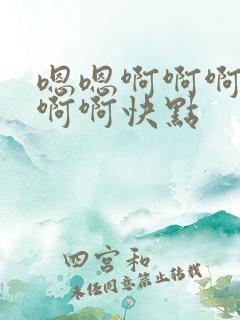 嗯嗯啊啊啊
啊啊快點
四宫和
未经同意禁止转载